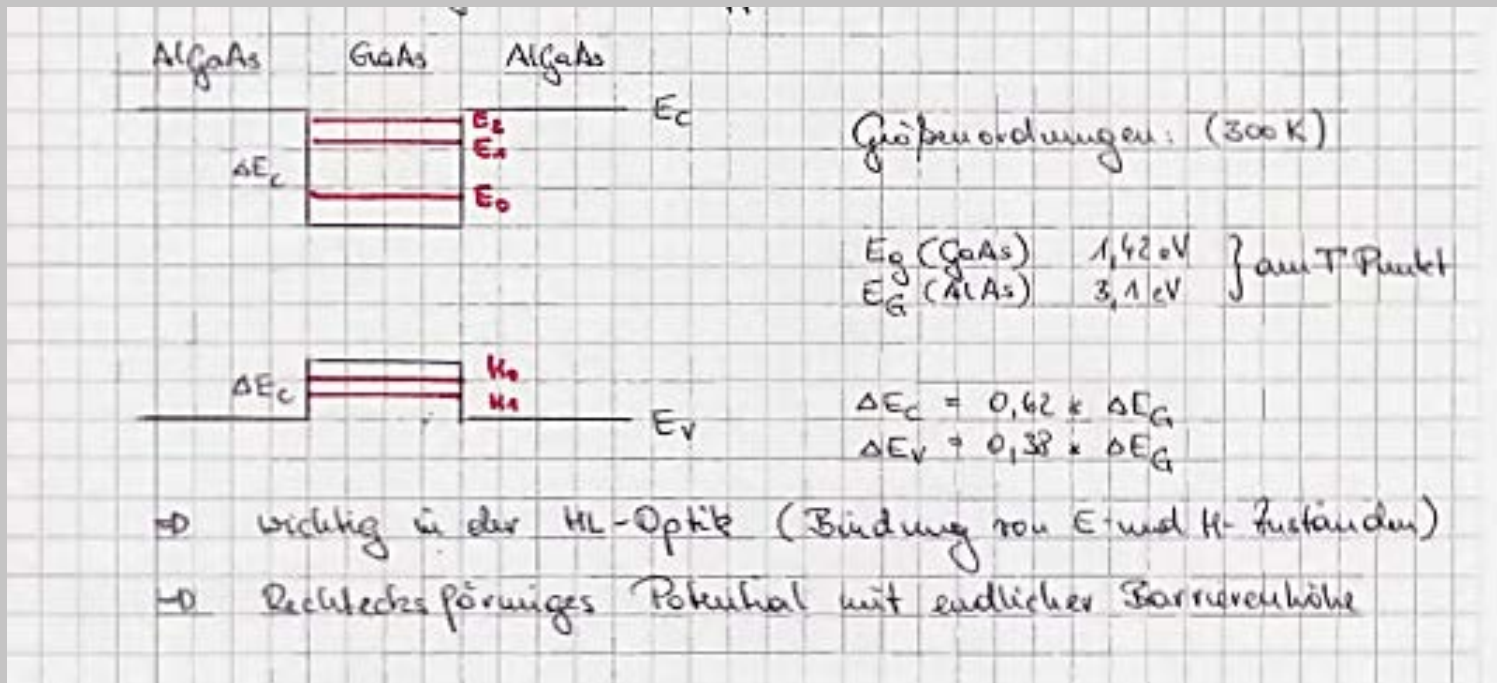 AlGaAs GaAs AlGaAs
E_C
E_2
E_1
ΔE_C
E_0
Größenordnungen: (300 K)
E_g (GaAs) 1,42 eV
E_G (AlAs) 3,1 eV } am Γ Punkt
H_0
ΔE_C
H_1
E_V
ΔE_C = 0,62 * ΔE_G
ΔE_V = 0,38 * ΔE_G
⇒ wichtig in der HL-Optik (Bindung von E- und H-Zuständen)
⇒ Rechtecksförmiges Potential mit endlicher Barrierenhöhe